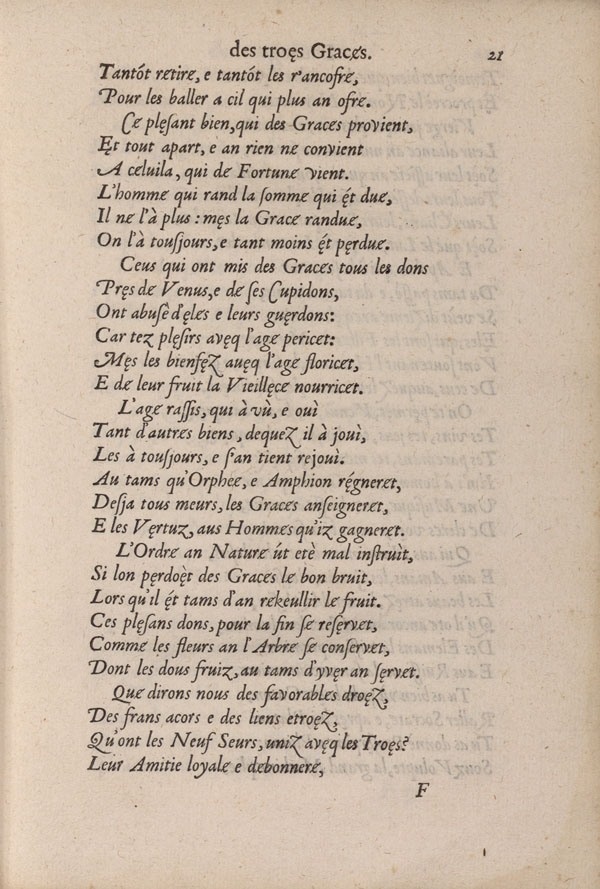 des troęs Graces.
21
Tantót retire, e tantót les r'ancofre,
Pour les baller a cil qui plus an ofre.
Ce plęsant bien, qui des Graces provient,
Et tout apart, e an rien ne convient
A celuila, qui de Fortune vient.
L'homme qui rand la somme qui ę́t due,
Il ne l'à plus : męs la Grace randue,
On l'à tousjours, e tant moins ę́t pęrdue.
Ceus qui ont mis des Graces tous les dons
Pręs de Venus, e de ses Cupidons,
Ont abusè d'ęles e leurs guęrdons:
Car tez plęsirs avęq l'age pericet:
Męs les bienfęz auęq l'age floricet,
E de leur fruit la Vieillęce nourricet.
L'age rassis, qui à vù, e ouì
Tant d'autres biens, dequez il à jouì,
Les à tousjours, e s'an tient rejouì.
Au tams qu'Orphee, e Amphion régneret,
Desja tous meurs, les Graces anseigneret,
E les Vęrtuz, aus Hommes qu'iz gagneret.
L'Ordre an Nature út etè mal instruìt,
Si lon pęrdoęt des Graces le bon bruit,
Lors qu'il ę́t tams d'an rekeullir le fruit.
Ces plęsans dons, pour la fin se resęrvet,
Comme les fleurs an l'Arbre se consęrvet,
Dont les dous fruiz, au tams d'yvęr an sęrvet.
Que dirons nous des favorables droęz,
Des frans acors e des liens etroęz,
Qu'ont les Neuf Seurs, uniz avęq les Troęs?
Leur Amitie loyale e debonnere,
F